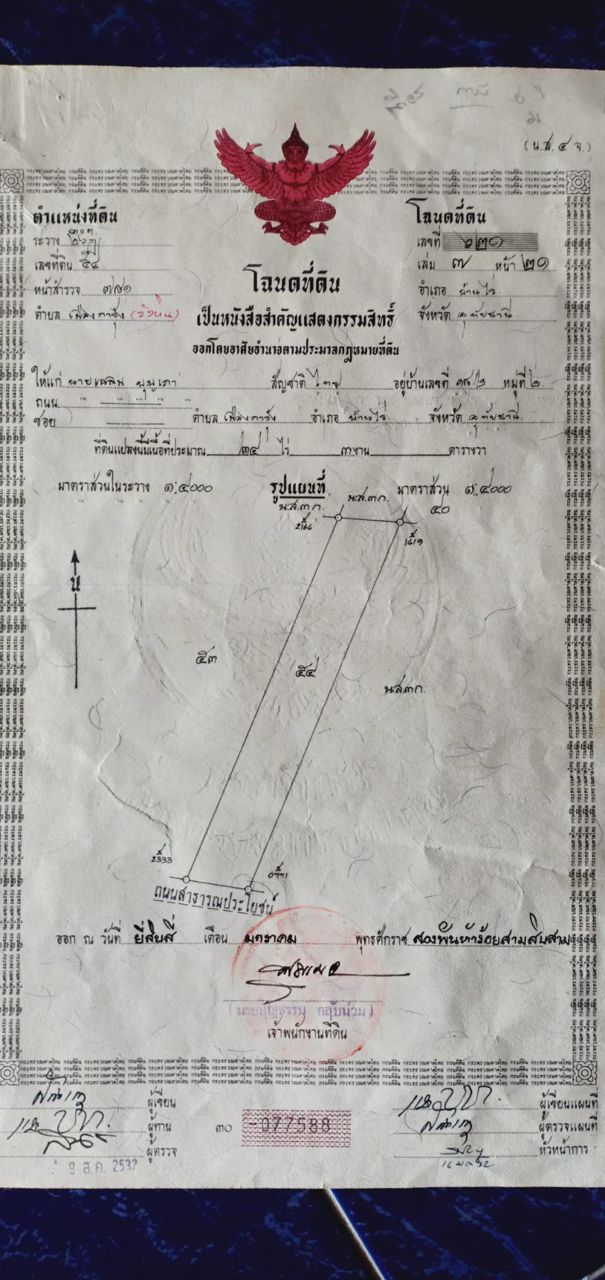 (น.ส. ๔ จ.)
ตำแหน่งที่ดิน
โฉนดที่ดิน
ระวาง
เลขที่ ๖๒๑
เลขที่ดิน ๕๔
เล่ม ๗ หน้า ๒๑
หน้าสำรวจ ๓๘๑
อำเภอ บ้านไร่
ตำบล เมืองการุ้ง (วังหิน)
จังหวัด อุทัยธานี
โฉนดที่ดิน
เป็นหนังสือสำคัญแสดงกรรมสิทธิ์
ออกโดยอาศัยอำนาจตามประมวลกฎหมายที่ดิน
ให้แก่ นาย สัญชาติ ไทย อยู่บ้านเลขที่ หมู่ที่ ๒
ถนน
ซอย ตำบล เมืองการุ้ง อำเภอ บ้านไร่ จังหวัด อุทัยธานี
ที่ดินแปลงนี้มีเนื้อที่ประมาณ ๒๔ ไร่ ๓ งาน ตารางวา
มาตราส่วนในระวาง ๑:๔๐๐๐ รูปแผนที่ มาตราส่วน ๑:๔๐๐๐
น.ส.๓ก. น.ส.๓ก. ๕๐
น
๕๓
๕๔
น.ส.๓ก.
2333
ถนนสาธารณประโยชน์
ออก ณ วันที่ ยี่สิบสี่ เดือน มกราคม พุทธศักราช สองพันห้าร้อยสามสิบสาม
เจ้าพนักงานที่ดิน
ผู้เขียน
ผู้ทาน
ผู้ตรวจ
9 ส.ค. 2532
๓๐ -077588
ผู้เขียนแผนที่
ผู้ตรวจแผนที่
หัวหน้าการ